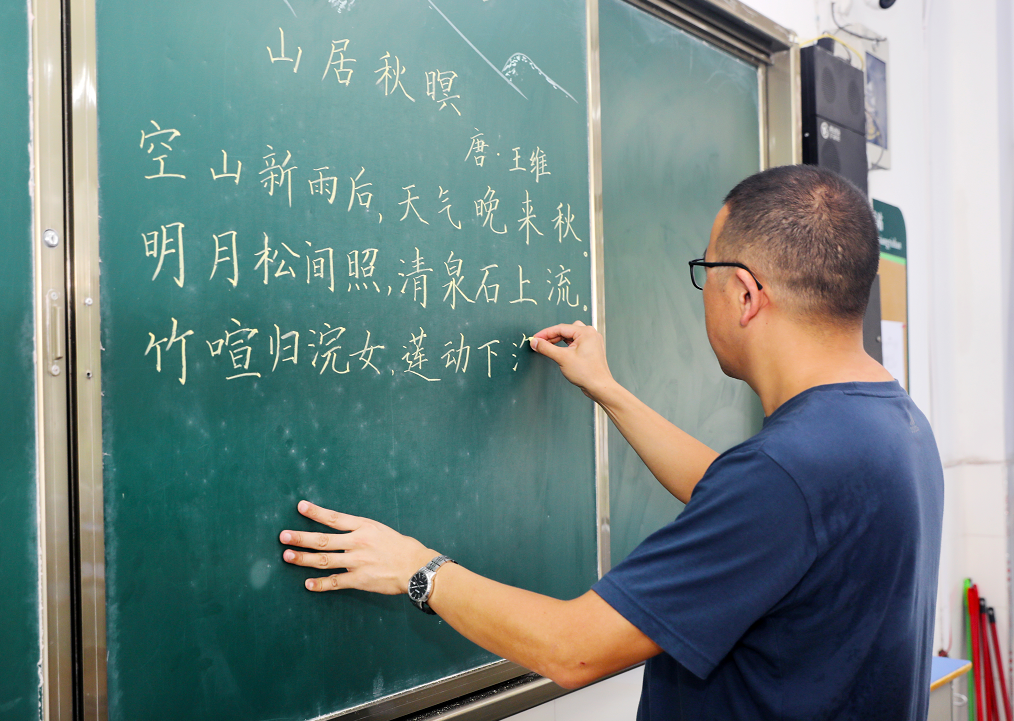 山居秋暝
唐·王维
空山新雨后,天气晚来秋。
明月松间照,清泉石上流。
竹喧归浣女,莲动下